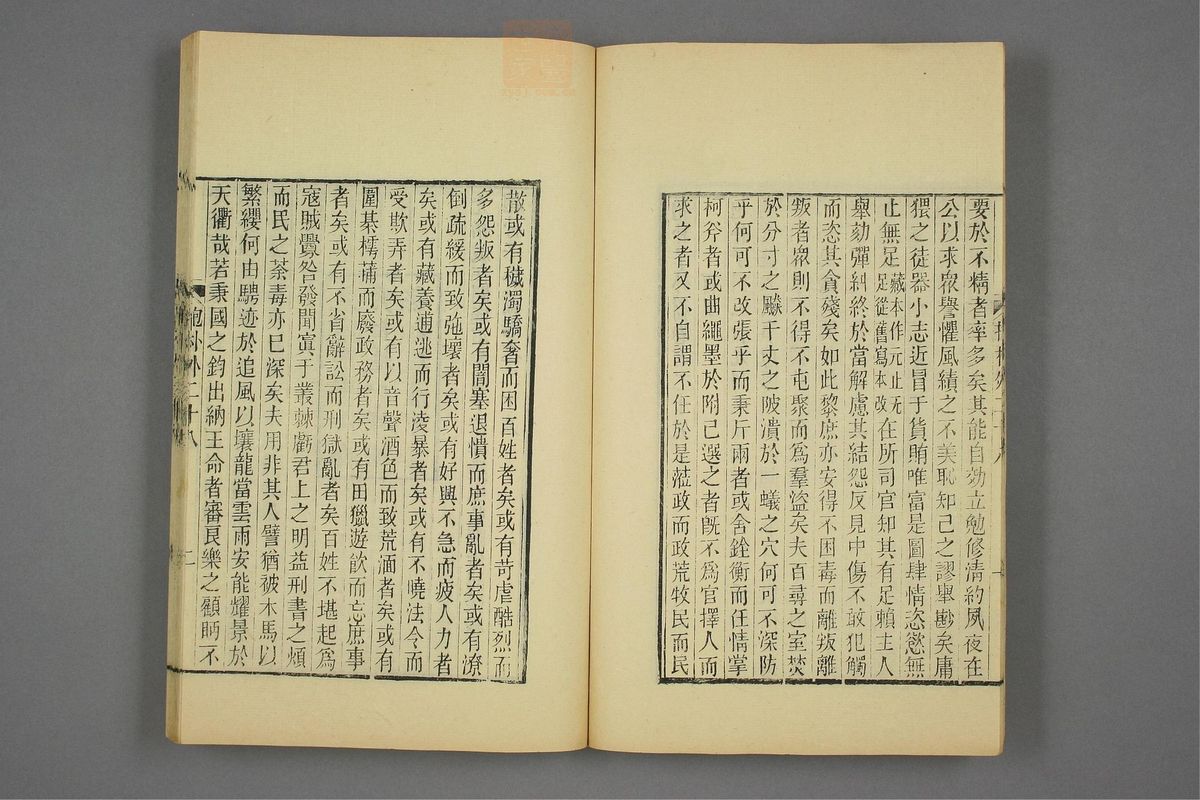 要於不精者率多矣其能自効立勉修淸約夙夜在
公以求衆譽懼風績之不美恥知己之謬舉尠矣庸
猥之徒器小志近冒于貨賄唯富是圖肆情恣慾無
止無足藏本作元止无足從舊寫本改在所司官知其有足賴主人
舉劾彈糾終於當解慮其結怨反見中傷不敢犯觸
而恣其貪殘矣如此黎庶亦安得不困毒而離叛離
叛者衆則不得不屯聚而爲羣盜矣夫百尋之室焚
於分寸之飈千丈之陂潰於一蟻之穴何可不深防
乎何可不改張乎而秉斤兩者或舍銓衡而任情掌
柯斧者或曲繩墨於附己選之者旣不爲官擇人而
求之者又不自謂不任於是蒞政而政荒牧民而民
散或有穢濁驕奢而困百姓者矣或有苛虐酷烈而
多怨叛者矣或有闇塞退憒而庶事亂者矣或有潦
倒疏緩而致弛壞者矣或有好興不急而疲人力者
矣或有藏養逋逃而行淩暴者矣或有不曉法令而
受欺弄者矣或有以音聲酒色而致荒湎者矣或有
圍棊樗蒱而廢政務者矣或有田獵遊飮而忘庶事
者矣或有不省辭訟而刑獄亂者矣百姓不堪起爲
寇賊釁咎發聞寘于叢棘虧君上之明益刑書之煩
而民之荼毒亦已深矣夫用非其人譬猶被木馬以
繁纓何由騁迹於追風以壤龍當雲雨安能耀景於
天衢哉若秉國之鈞出納王命者審良樂之顧眄不
抱朴外二十八
二